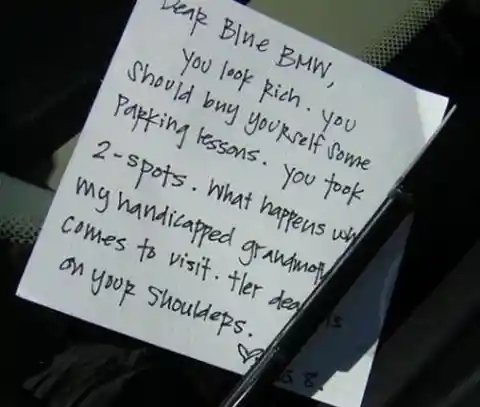 Dear Blue BMW,
You look Rich. You
Should buy yourself some
Parking lessons. You took
2-spots. What happens
my handicapped
comes to visit. Her
on your shoulders.
♡
8.